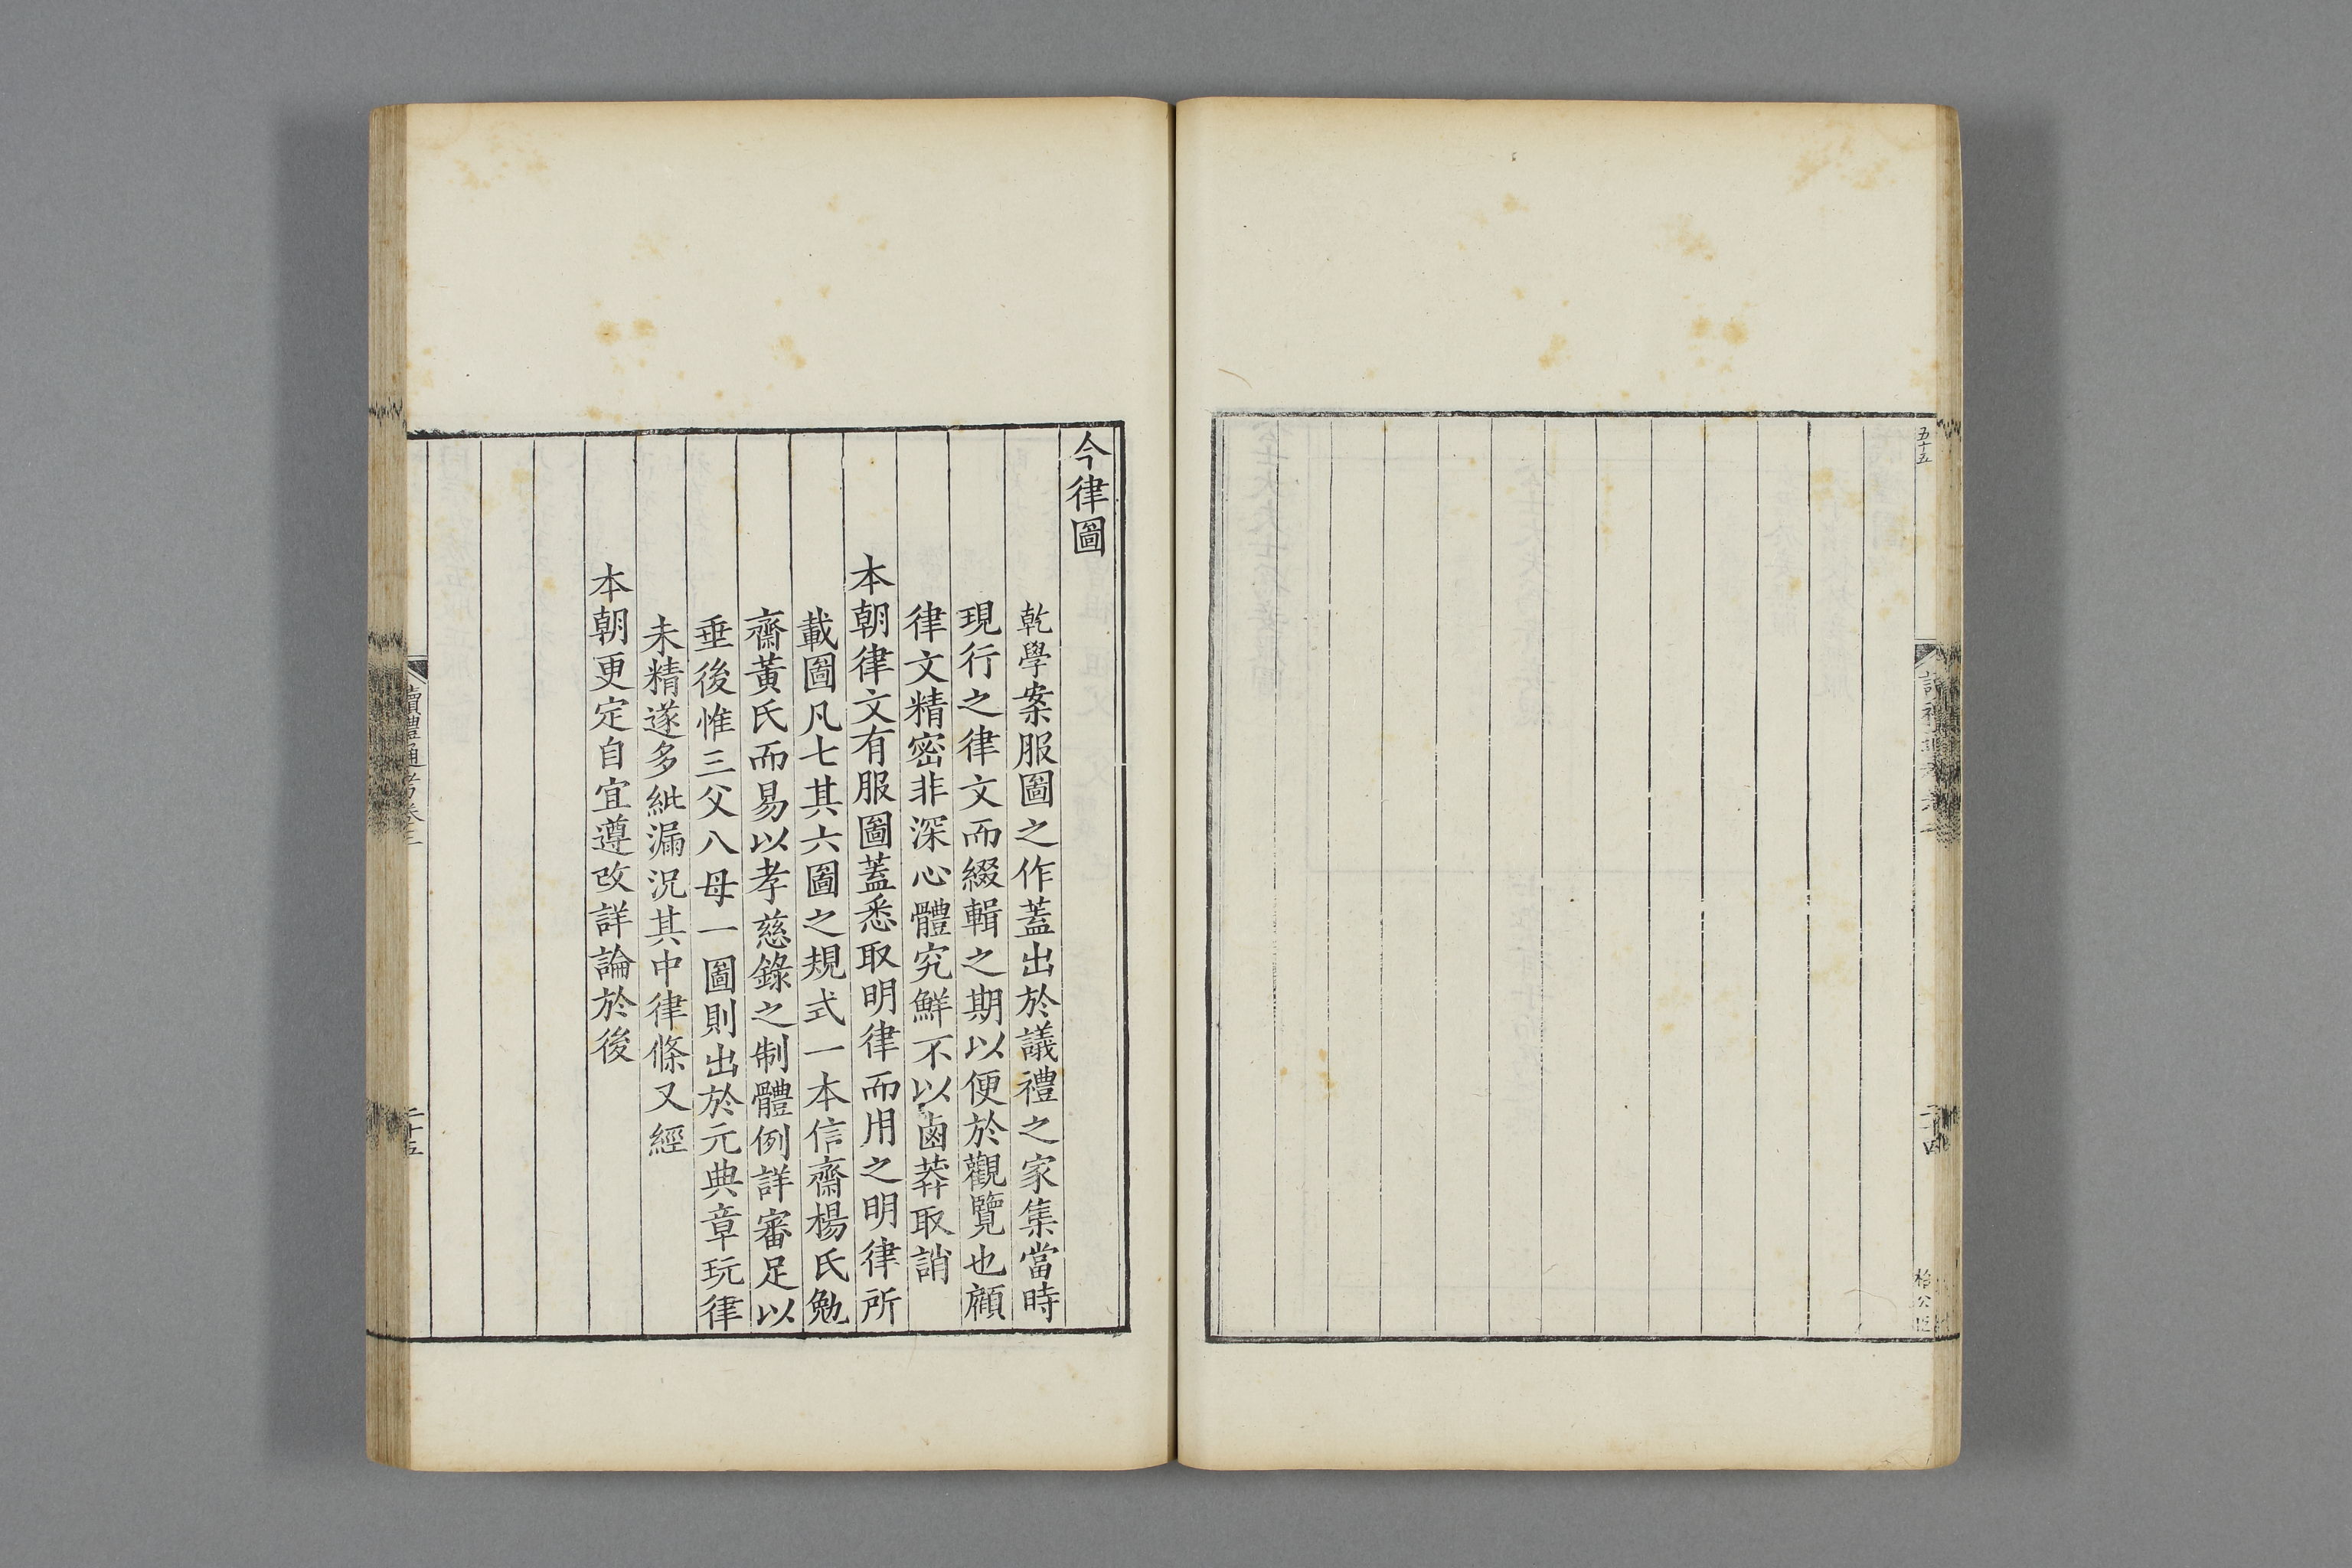 五十五
今律圖
乾學案服圖之作蓋出於議禮之家集當時
現行之律文而綴輯之期以便於觀覽也顧
律文精密非深心體究鮮不以鹵莽取誚
本朝律文有服圖蓋悉取明律而用之明律所
載圖凡七其六圖之規式一本信齋楊氏勉
齋黃氏而易以孝慈錄之制體例詳審足以
垂後惟三父八母一圖則出於元典章玩律
未精遂多紕漏況其中律條又經
本朝更定自宜遵改詳論於後
讀禮通考卷三
二十五